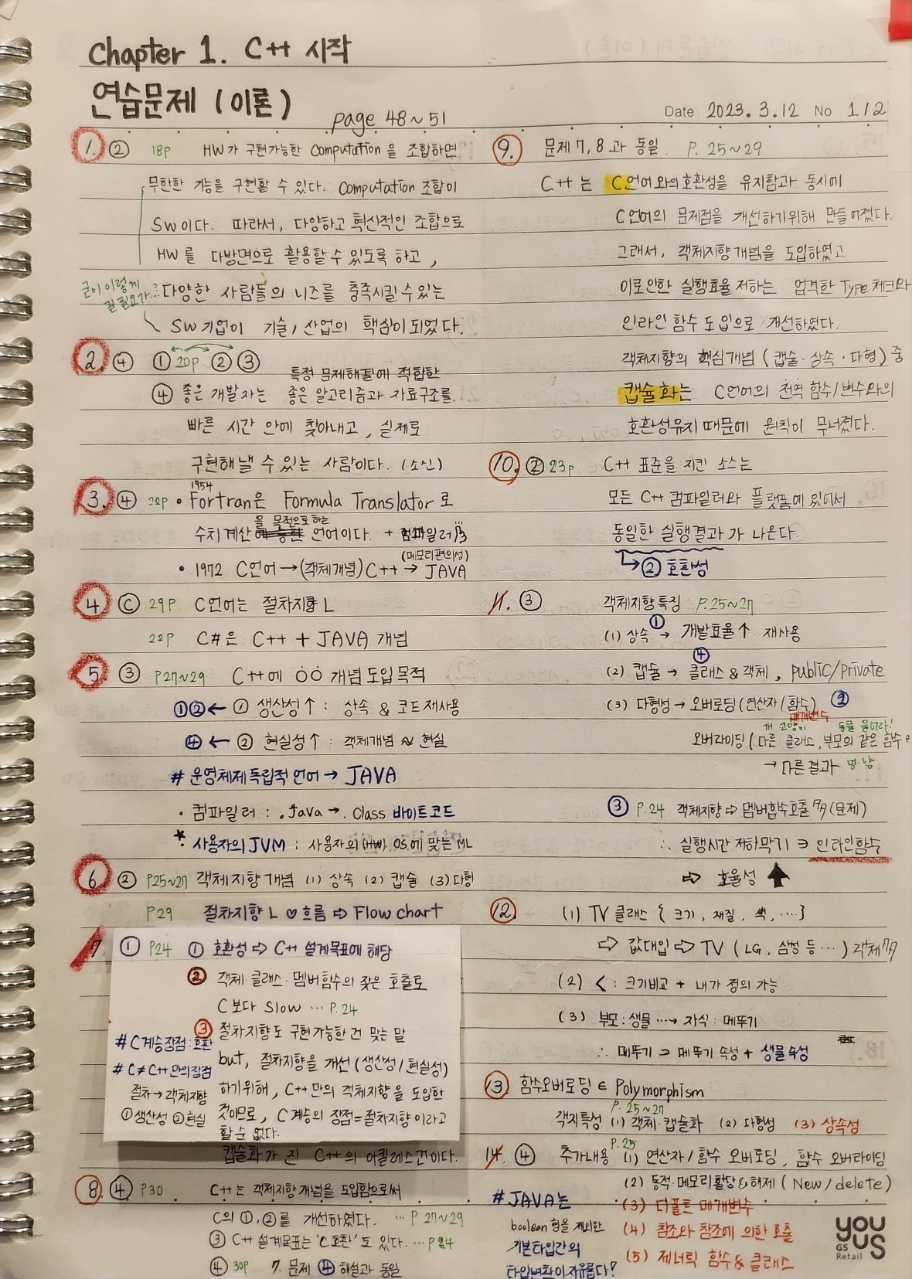 Chapter 1. C++ 시작
연습문제 (이론)
page 48~51
Date 2023. 3. 12 No 1/2
1. ② 18p HW가 구현가능한 Computation을 조합하면
무한한 기능을 구현할 수 있다. Computation 조합이
SW이다. 따라서, 다양하고 혁신적인 조합으로
HW를 다방면으로 활용할 수 있도록 하고,
굳이 이렇게
다양한 사람들의 니즈를 충족시킬 수 있는
SW기업이 기술/산업의 핵심이 되었다.
2. ④ ① 20p ② ③
특정 문제해결에 적합한
④ 좋은 개발자는 좋은 알고리즘과 자료구조를
빠른 시간 안에 찾아내고, 실제로
구현해낼 수 있는 사람이다. (소신)
1954
3. ④ 28p • Fortran은 Formula Translator로
을 목적으로 하는
수치계산 언어이다. + 컴파일러
(메모리관의성)
• 1972 C언어 → (객체개념) C++ → JAVA
4. C 29p C언어는 절차지향 L
22p C#은 C++ + JAVA 개념
5. ③ P27~29 C++에 ㅇㅇ 개념 도입 목적
①② ← ① 생산성↑ : 상속 & 코드재사용
④ ← ② 현실성↑ : 객체개념 ≈ 현실
# 운영체제 독립적 언어 → JAVA
• 컴파일러 : .Java → .Class 바이트코드
* 사용자의 JVM : 사용자의 (HW) OS에 맞는 ML
6. ② P25~27 객체지향 개념 (1) 상속 (2) 캡슐 (3) 다형
P29 절차지향 L ♡ 흐름 ⇨ Flow chart
7 ① P24 ① 호환성 ⇨ C++ 설계목표에 해당
② 객체·클래스·멤버함수의 잦은 호출로
C보다 Slow … P.24
③ 절차지향도 구현가능한 건 맞는 말
# C계승장점 : 호환
but, 절차지향을 개선 (생산성/현실성)
# C≠C++만의 장점
하기위해, C++만의 객체지향을 도입한
절차→객체지향
것이므로, C계승의 장점=절차지향 이라고
①생산성 ②현실
할 순 없다.
캡슐화가 진 C++의 아킬레스건이다.
8. ④ P30 C++는 객체지향 개념을 도입함으로써
C의 ①, ②를 개선하였다. … P27~29
③ C++ 설계목표는 'C호환'도 있다. … P24
④ 30p 7. 문제 ④ 해설과 동일
9. 문제 7, 8과 동일. P. 25~29
C++는 C언어와의 호환성을 유지함과 동시에
C언어의 문제점을 개선하기위해 만들어졌다.
그래서, 객체지향 개념을 도입하였고
이로인한 실행효율 저하는 엄격한 Type 체크와
인라인 함수 도입으로 개선하였다.
객체지향의 핵심개념 (캡슐·상속·다형) 중
캡슐화는 C언어의 전역 함수/변수와의
호환성유지 때문에 원칙이 무너졌다.
10. ② 23p C++ 표준을 지킨 소스는
모든 C++ 컴파일러와 플랫폼에 있어서
동일한 실행결과가 나온다.
② 호환성
11. ③ 객체지향 특징 P.25~27
①
(1) 상속 → 개발효율↑ 재사용
④
(2) 캡슐 → 클래스 & 객체, public/private
(3) 다형성 → 오버로딩 (연산자/함수) ②
매개변수
개 고양이 동물 울다라!
오버라이딩 (다른 클래스, 부모의 같은 함수
→ 다른결과 멍·냥
③ P.24 객체지향 ⇨ 멤버함수호출 ↗↗ (문제)
∴ 실행시간 저하막기 ∋ 인라인함수
⇨ 효율성 ↑
12. (1) TV 클래스 { 크기, 재질, 색, …}
⇨ 값대입 ⇨ TV (LG, 삼성 등 …) 객체↗↗
(2) < : 크기비교 + 내가 정의 가능
(3) 부모 : 생물 …→ 자식 : 메뚜기
∴ 메뚜기 ⊃ 메뚜기 속성 + 생물속성
13. 함수오버로딩 ∈ Polymorphism
P. 25~27
객지특성 (1) 객체·캡슐화 (2) 다형성 (3) 상속성
P.25
14. ④ 추가내용 (1) 연산자/함수 오버로딩, 함수 오버라이딩
(2) 동적·메모리할당&해제 (New/delete)
# JAVA는 (3) 디폴트 매개변수
boolean형을 제외한 (4) 참조와 참조에 의한 호출
기본타입간의 (5) 제너릭 함수 & 클래스
타입변환이 자유롭다?
you us
GS Retail